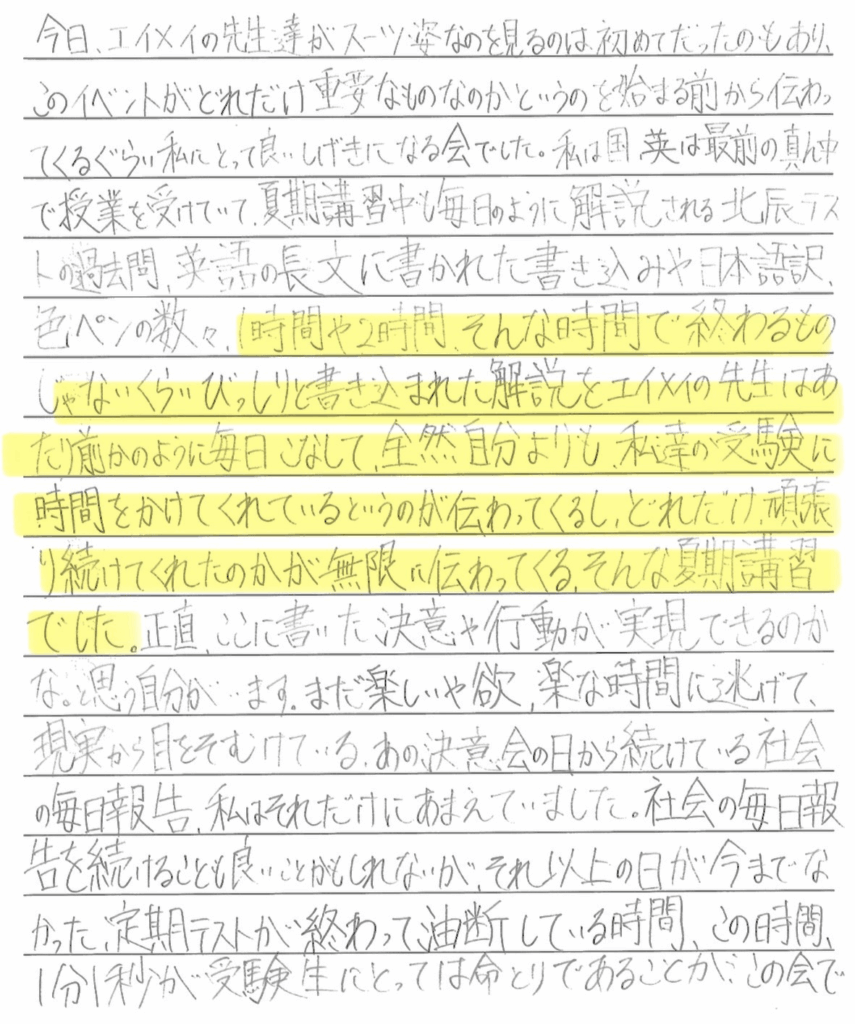 今日、エイメイの先生達がスーツ姿なのを見るのは初めてだったのもあり、
このイベントがどれだけ重要なものなのかというのを始まる前から伝わっ
てくるぐらい私にとって良いしげきになる会でした。私は国、英は最前の真ん中
で授業を受けていて、夏期講習中も毎日のように解説される北辰テス
トの過去問、英語の長文に書かれた書き込みや日本語訳、
色ペンの数々、1時間や2時間、そんな時間で終わるもの
じゃないくらいびっしりと書き込まれた解説をエイメイの先生はあ
たり前かのように毎日こなして、全然自分よりも、私達の受験に
時間をかけてくれているというのが伝わってくるし、どれだけ、頑張
り続けてくれたのかが無限に伝わってくる、そんな夏期講習
でした。正直、ここに書いた決意や行動が実現できるのか
な。と思う自分がいます。まだ楽しいや欲、楽な時間に逃げて、
現実から目をそむけている。あの、決意会の日から続けている社会
の毎日報告、私はそれだけにあまえていました。社会の毎日報
告を続けることも良いことかもしれないが、それ以上の日が今までな
かった、定期テストが終わって、油断している時間、この時間、
1分1秒が受験生にとっては命とりであることが、この会で